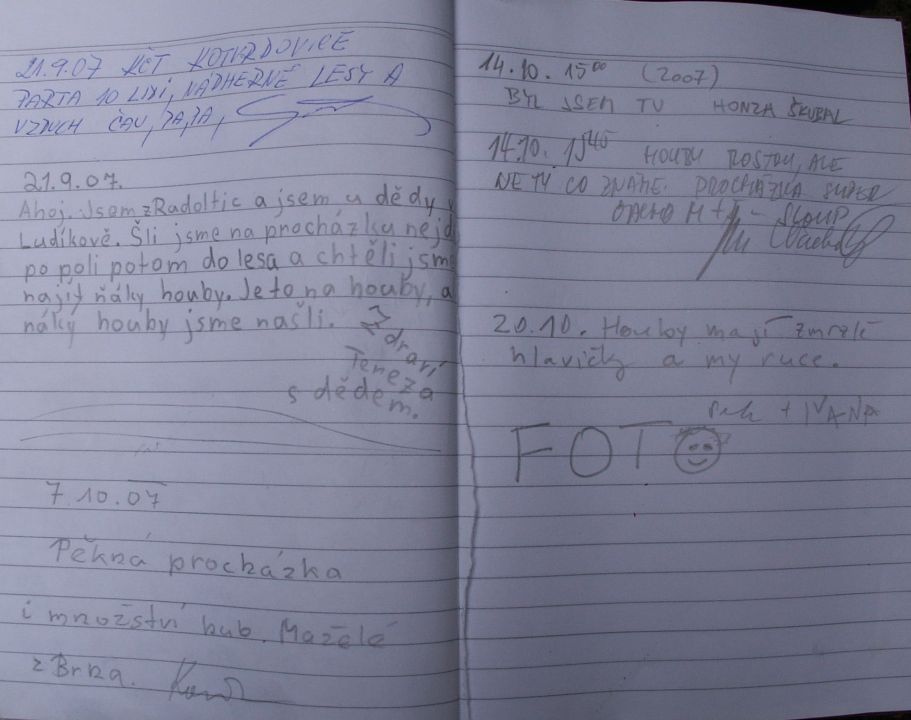 21.9.07 KČT KOTVRDOVICE
PARTA 10 LIDÍ, NÁDHERNÉ LESY A
VZDUCH ČAU, PA, PA,
21.9.07.
Ahoj. Jsem z Radoltic a jsem u dědy v
Ludíkově. Šli jsme na procházku nejd
po poli potom do lesa a chtěli jsme
najít ňáky houby. Je to na houby, a
náky houby jsme našli. Zdraví
Tereza
s dědem.
7.10.07
Pěkná procházka
i množství hub. Maželé
z Brna.
14.10. 15⁰⁰ (2007)
BYL JSEM TU HONZA ŠKVAŘIL
14.10. 15⁴⁵ HOUBY ROSTOU, ALE
NE TY CO ZNÁME. PROCHÁZKA SUPER
SLOUP
20.10. Houby mají zmrzlé
hlavičky a my ruce.
+ IVANA
FOTO